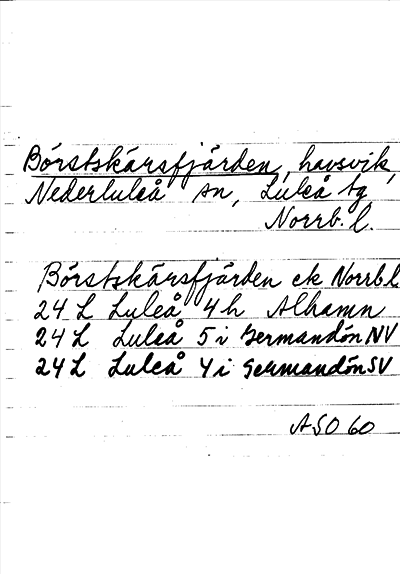 Börstskärsfjärden, havsvik,
Nederluleå sn, Luleå tg
Norrb. l.
Börstskärsfjärden ek Norrb l
24 L Luleå 4h Alhamn
24 L Luleå 5i Germandön NV
24 L Luleå 4i Germandön SV
ASO 60